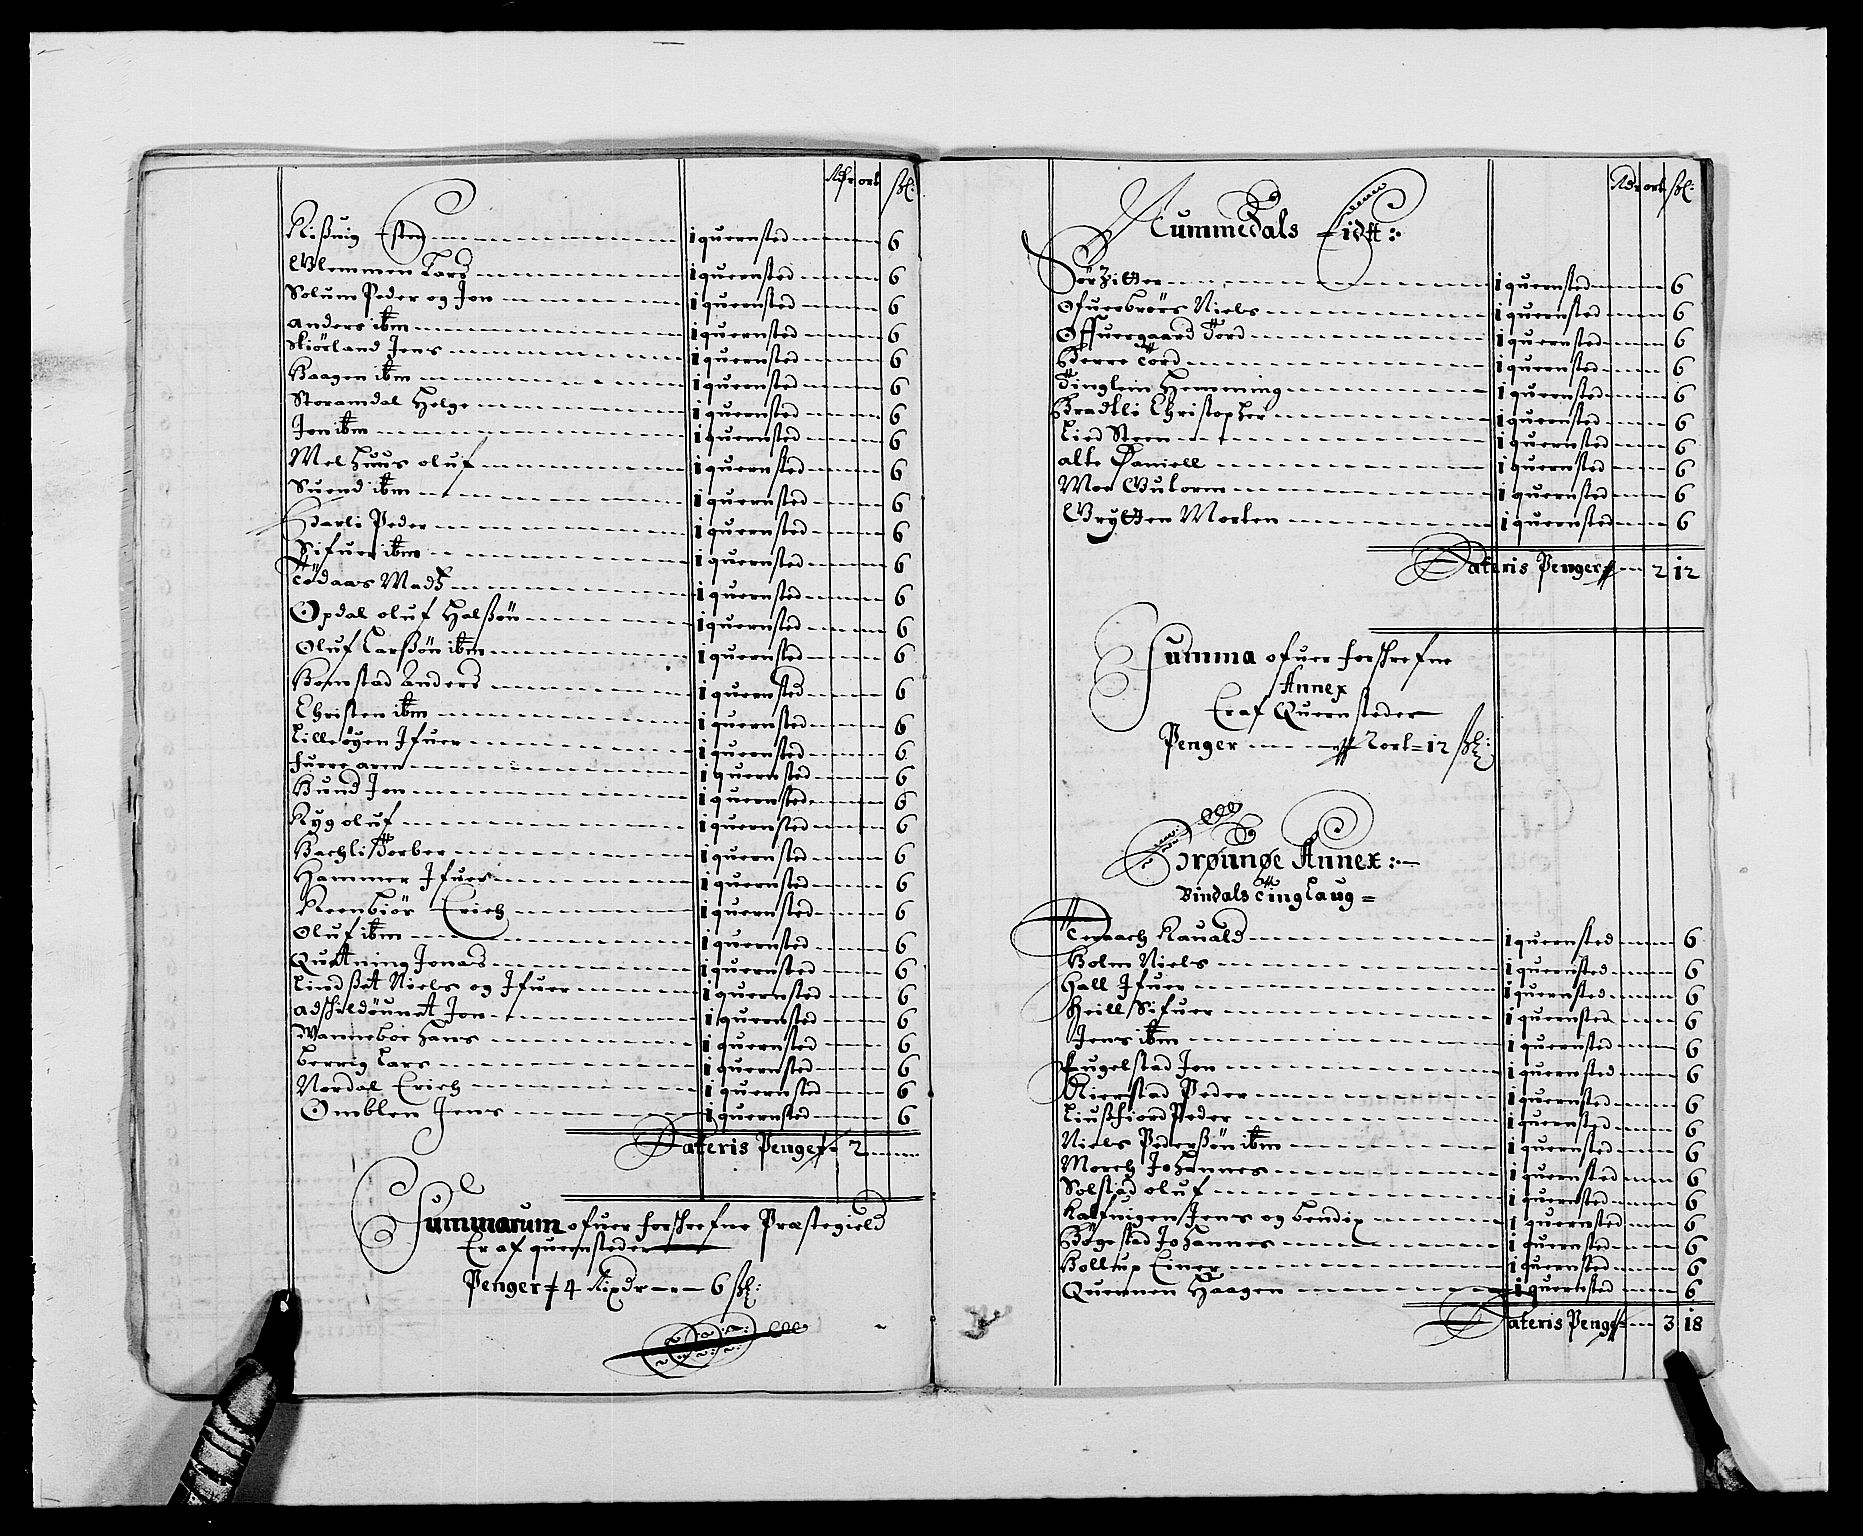 Rdr ort ßl:
Kißuig Sten 1 quernsted 6
Glemmen Lars 1 quernsted 6
Solum Peder og Jon 1 quernsted 6
Anders ibm 1 quernsted 6
Skiørland Jens 1 quernsted 6
Haagen ibm 1 quernsted 6
Storamdal Helge 1 quernsted 6
Jon ibm 1 quernsted 6
Melhuus oluf 1 quernsted 6
Suend ibm 1 quernsted 6
Harli Peder 1 quernsted 6
Sifuer ibm 1 quernsted 6
Tødaas Madtz 1 quernsted 6
Opdal oluf Halßøn 1 quernsted 6
Oluf Larßøn ibm 1 quernsted 6
Homstad Anders 1 quernsted 6
Christen ibm 1 quernsted 6
Lilleøyen Jfuer 1 quernsted 6
fuere aren 1 quernsted 6
Hund Jon 1 quernsted 6
Ryg oluf 1 quernsted 6
Bachli Torber 1 quernsted 6
Hammer Jfuer 1 quernsted 6
Reenbiør Erich 1 quernsted 6
Oluf ibm 1 quernsted 6
Quatning Jonas 1 quernsted 6
Lindset Niels og Jfuer 1 quernsted 6
Adskildøunet Jon 1 quernsted 6
Wanneboe Hans 1 quernsted 6
berrig Lars 1 quernsted 6
Nordal Erich 1 quernsted 6
Omblen Jens 1 quernsted 6
Lateris Penger 2
Summarum ofuer forschrefne Præstegield
Er af quernsteder
Penger 4 Rixdr 6 ßl:
Rdr ort ßl:
Nummedals Eidet:
Sørhitter 1 quernsted 6
Ofuerbrørs Niels 1 quernsted 6
Offuergaard Tord 1 quernsted 6
Herre Tord 1 quernsted 6
Finglein Hemming 1 quernsted 6
Bradtli Christopher 1 quernsted 6
Lied Steen 1 quernsted 6
alte Daniell 1 quernsted 6
Moe Gutorm 1 quernsted 6
Grytten Morten 1 quernsted 6
Lateris Penger 2 12
Summa ofuer forschrefne
Annex
Er af Quernsteder
Penger 2 ort = 12 ßl:
Brøunøe Annex:
Bindals Tinglaug =
Terraach Rauald 1 quernsted 6
Holm Niels 1 quernsted 6
Hall Jfuer 1 quernsted 6
Heill Sifuer 1 quernsted 6
Jens ibm 1 quernsted 6
Fugelstad Jon 1 quernsted 6
Kierstad Peder 1 quernsted 6
Liusfiord Peder 1 quernsted 6
Niels Pederßøn ibm 1 quernsted 6
Moreh Johannes 1 quernsted 6
Solstad oluf 1 quernsted 6
Kalfuigen Jens og bendix 1 quernsted 6
Bøgestad Johannes 1 quernsted 6
Holltup Einer 1 quernsted 6
Quennen Haagen 1 quernsted 6
Lateris Penge 3 18